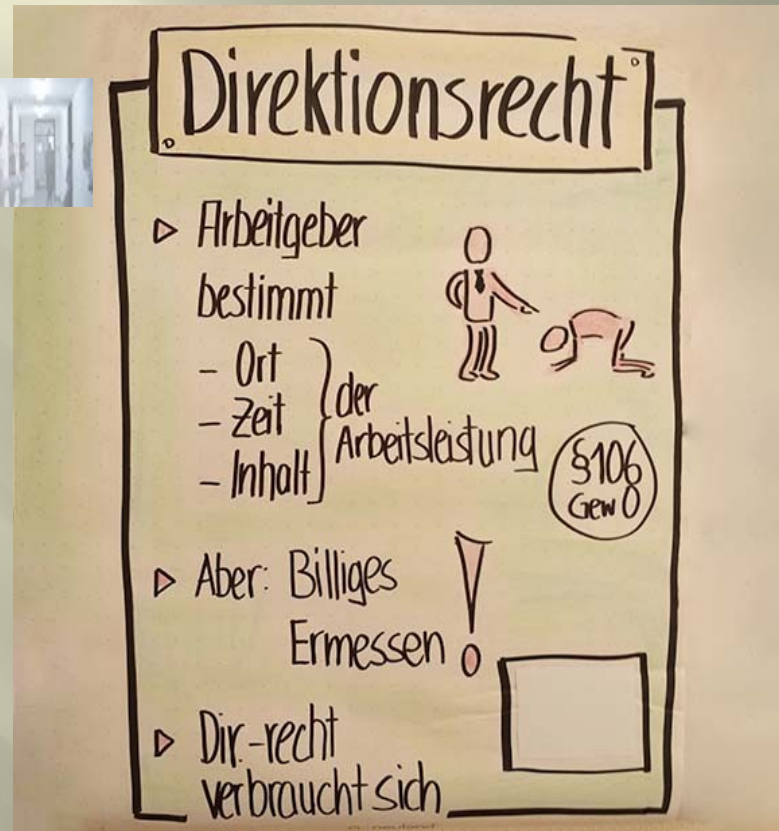 Direktionsrecht
Arbeitgeber
bestimmt
- Ort
- Zeit
- Inhalt
der
Arbeitsleistung
§106
GewO
Aber: Billiges
Ermessen !
Dir.-recht
verbraucht sich